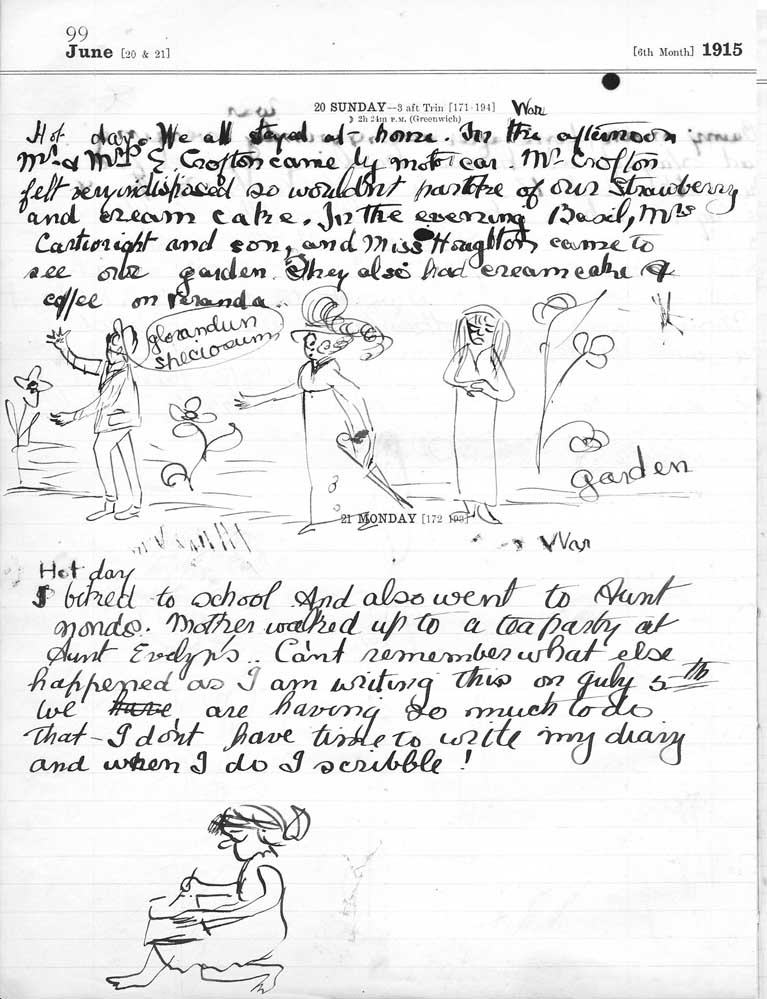 99
June [20 & 21]
[6th Month] 1915
20 SUNDAY—3 aft Trin [171-194] War
☽ 2h 24m P.M. (Greenwich)
Hot day. We all stayed at home. In the afternoon
Mr & Mrs E. Crofton came by motor car. Mr Crofton
felt very indisposed so wouldn't partake of our strawberry
and cream cake. In the evening Basil, Mrs
Cartwright and son, and Miss Houghton came to
see our garden. They also had cream cake &
coffee on veranda.
glorandum
speciosum
garden
21 MONDAY [172 193]
War
Hot day
I biked to school And also went to Aunt
nonds. Mother walked up to a tea party at
Aunt Evelyn's.. Can't remember what else
happened as I am writing this on July 5th
we have are having so much to do
that - I don't have time to write my diary
and when I do I scribble!